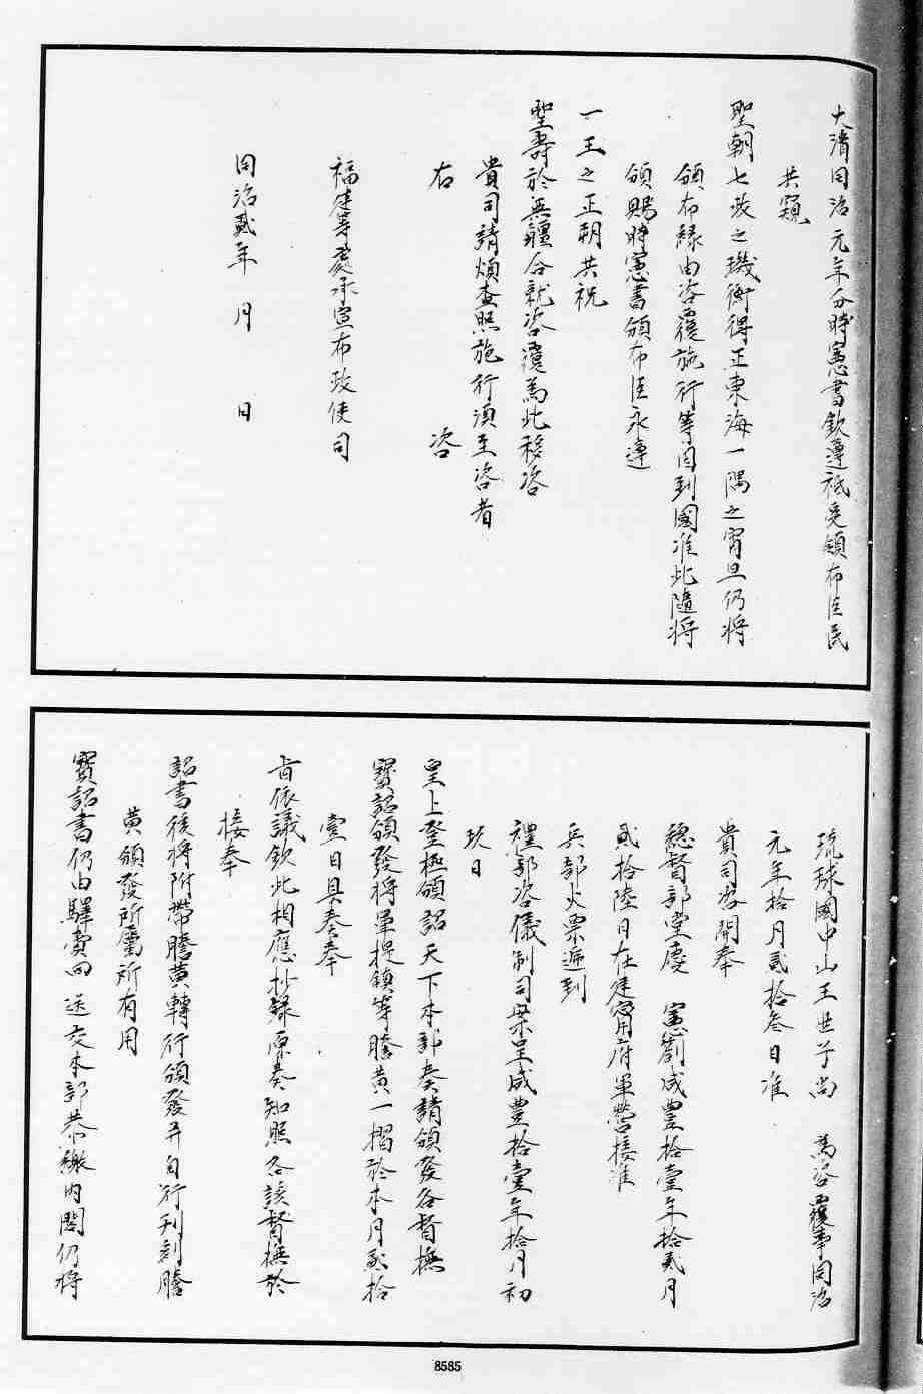 大清同治元年分時憲書欽遵祗受頒布臣民
共窺
聖朝七政之璣衡得正東海一隅之宵旦仍將
頒布緣由咨覆施行等因到國准此隨將
頒賜時憲書頒布臣永遵
一王之正朔共祝
聖壽於無疆合就咨覆爲此移咨
貴司請煩查照施行須至咨者
右　咨
福建等處承宣布政使司
同治貳年　月　日
琉球國中山王世子尚　爲咨覆事同治
元年拾月貳拾叁日准
貴司咨開奉
總督部堂慶　憲劄咸豐拾壹年拾貳月
貳拾陸日在建甯府軍營接准
兵部火票遞到
禮部咨儀制司案呈咸豐拾壹年拾月初
玖日
皇上登極頒詔天下本部奏請頒發各督撫
寶詔頒發將軍提鎮等謄黃一摺於本月貳拾
壹日具奏奉
旨依議欽此相應抄錄原奏知照各該督撫於
接奉
詔書後將附帶謄黃轉行頒發并自行刊刻謄
黃頒發所屬所有用
寶詔書仍由驛賫回送交本部恭繳內閣仍將
8585